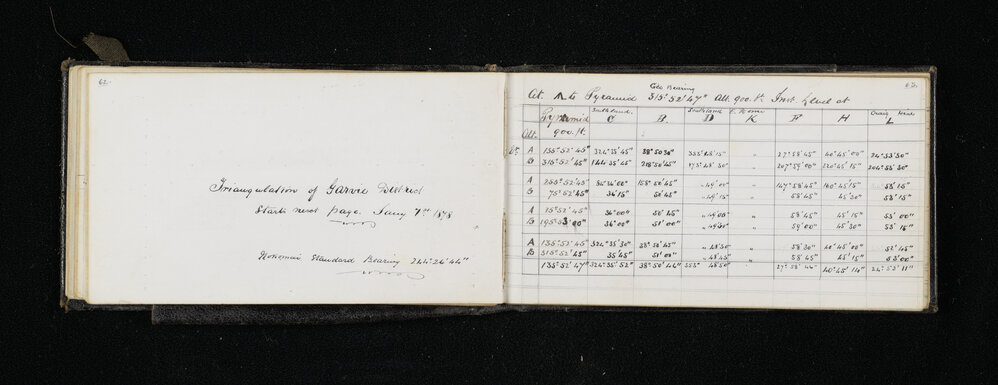 62.
Triangulation of Garvie District
Starts next page. Jany 7th 1878
Nokomai Standard Bearing 224° 24' 44"
63.
Geo Bearing
At to Pyramid 315° 52' 47" Alt. 900 ft. Inst Level at
Pyramid Southland. C B. Southland D K F H Craig L
Alt. 900 ft.
A 135° 52' 45" 324° 35' 45" 38° 50' 30" 353° 48' 15" " 27° 58' 45" 40° 45' 00" 24° 53' 30"
B 315° 52' 45" 144 35' 45" 218° 50' 45" 173° 48' 30" 207° 59' 00" 220° 45' 15" 204° 53' 30"
A 255° 52' 45" 84° 36' 00" 158° 50' 45" " 49' 00" 147° 58' 45" 160° 45' 15" 53' 15"
B 75° 52' 45" 36' 15" 50' 45" " 49' 15" 58' 45" 45' 30" 53' 15"
A 15° 52' 45" 36' 00" 50' 45" " 49' 00" " 58' 45" 45' 15" 53' 00"
B 195° 53' 00" 36' 00" 51' 00" " 49' 00" " 59' 00" 45' 30" 53' 15"
A 135° 52' 45" 324° 35' 30" 38° 50' 45" " 48' 30" " 58' 30" 40° 45' 00" 52' 45"
B 315° 52' 45" 35' 45" 51' 00" " 48' 45" " 58' 45" 45' 15" 53' 00"
135° 52' 47" 324° 35' 52" 38° 50' 46" 353° 48' 50" " 27° 58' 46" 40° 45' 14" 24° 53' 11"